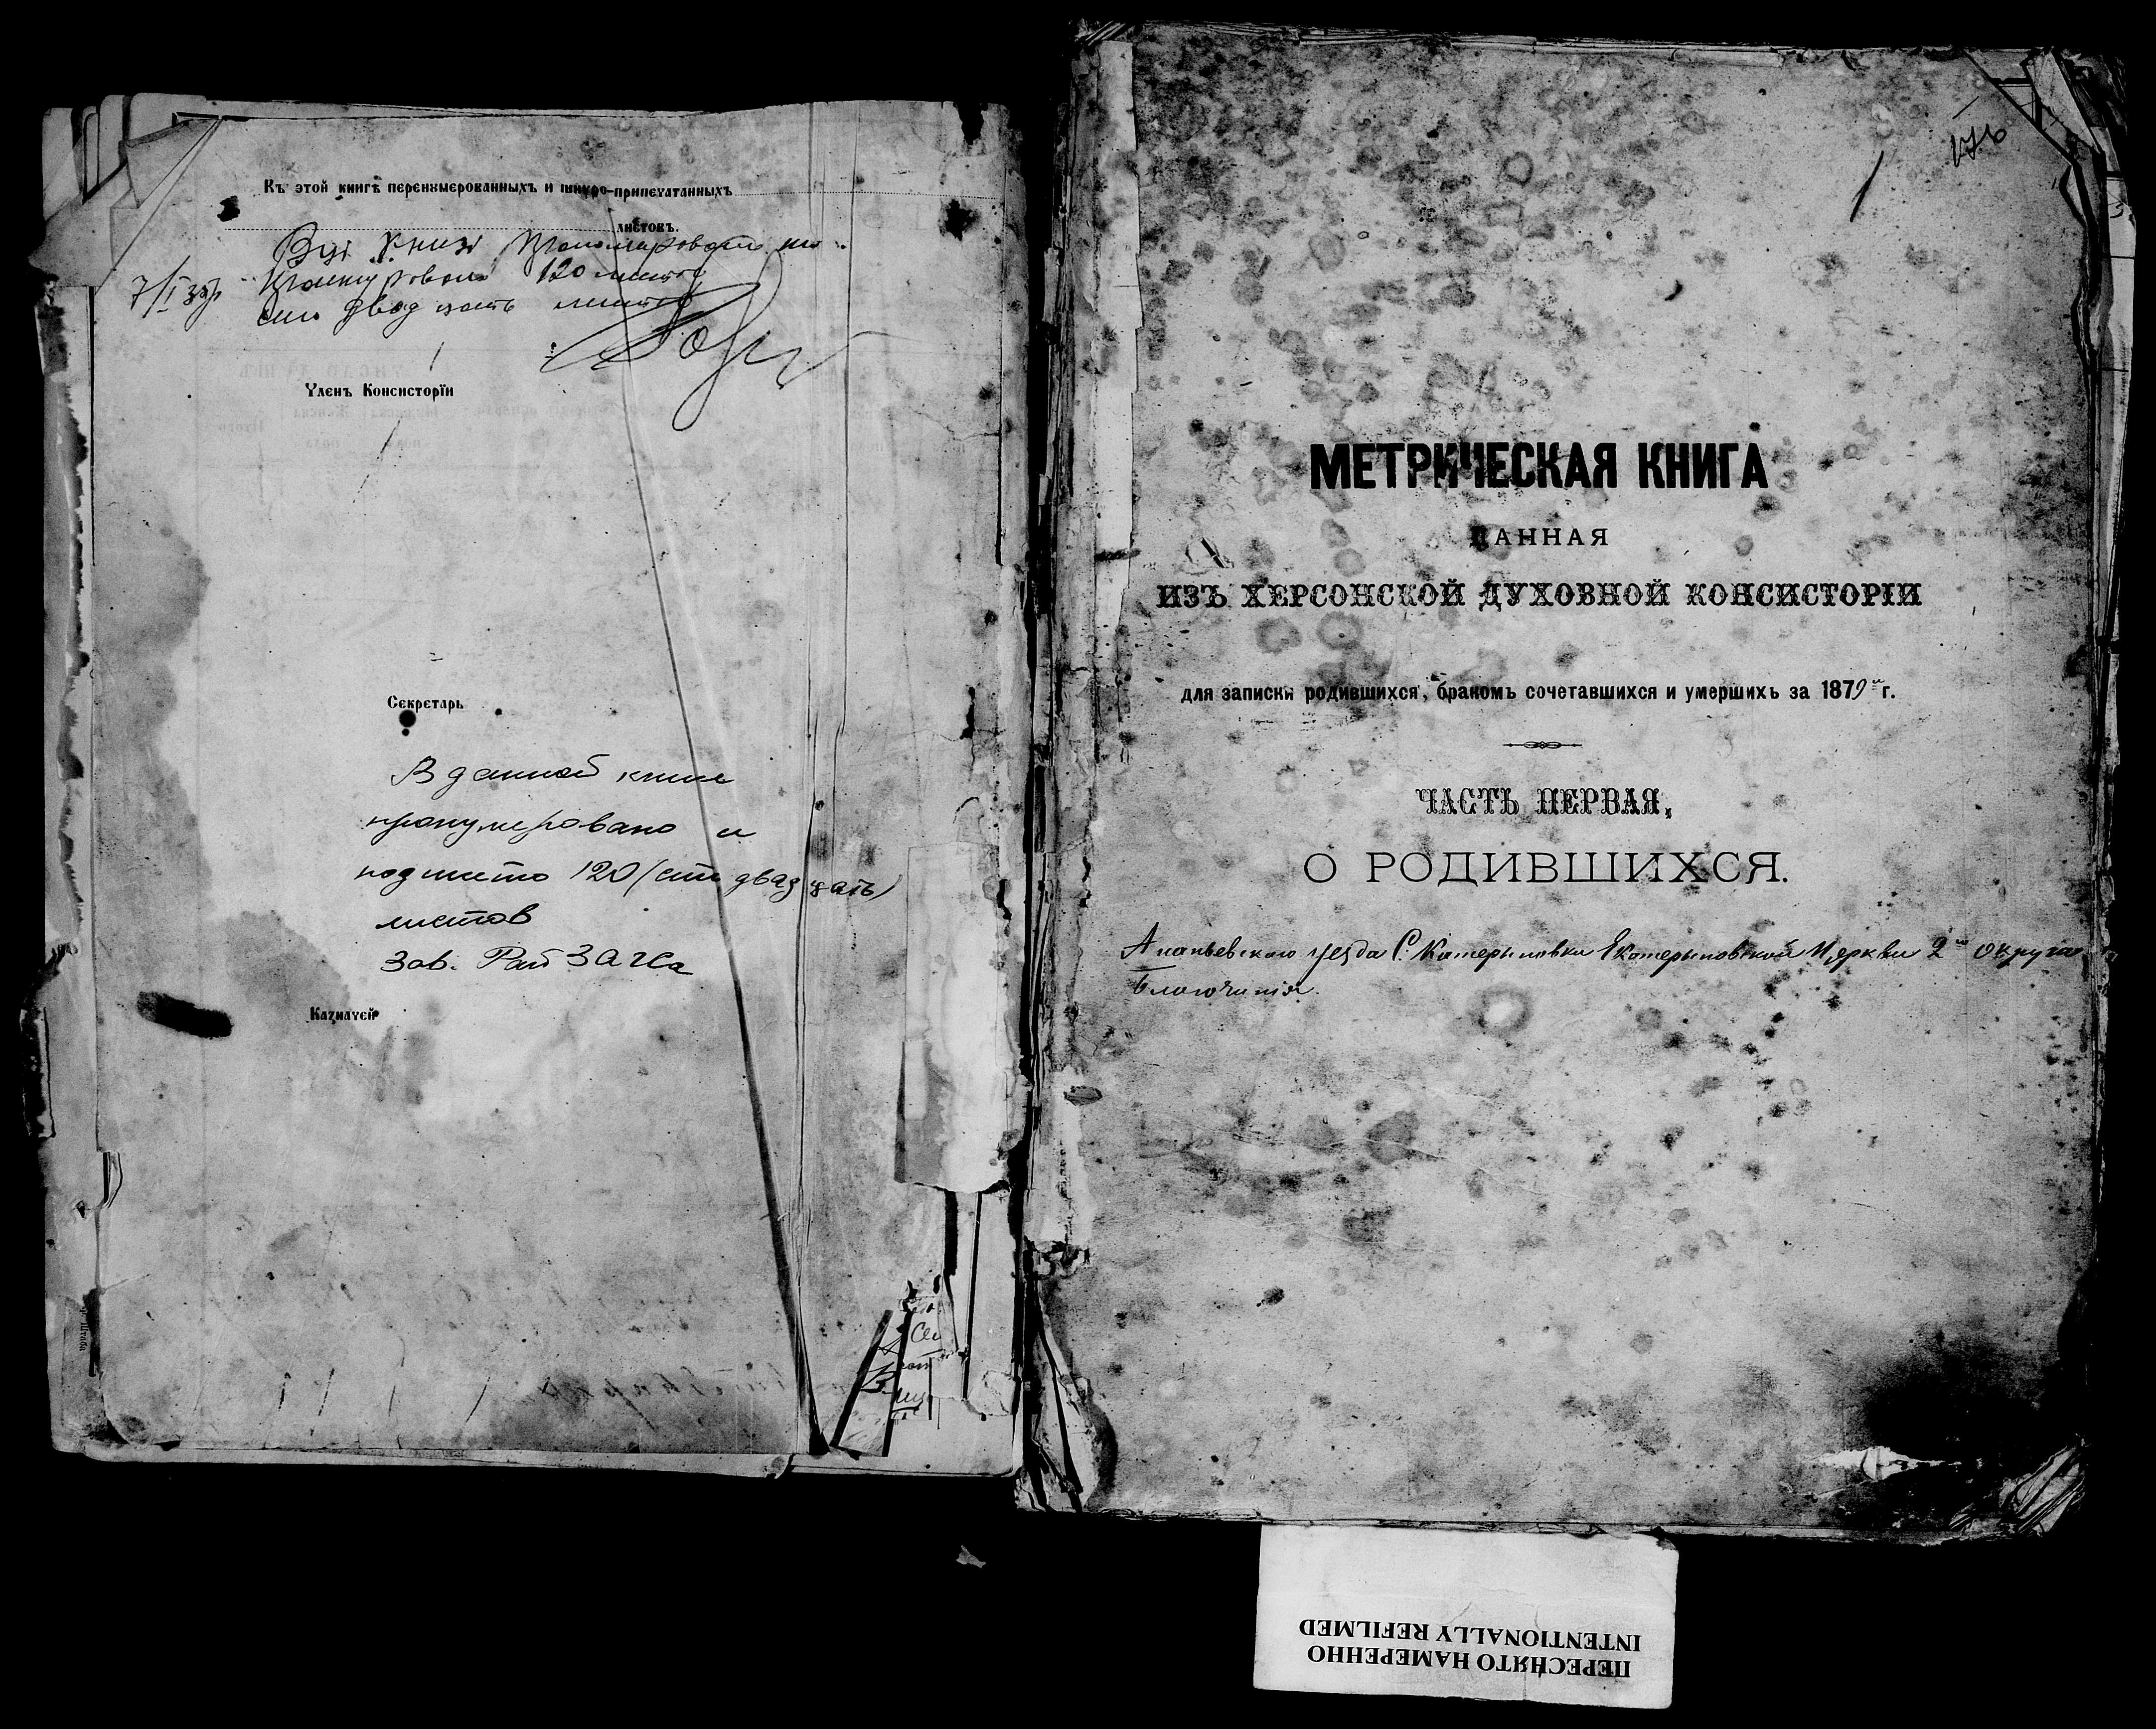 Къ этой книгѣ перенумерованныхъ и шнуро-припечатанныхъ
листовъ.
книзі 120
двадцать
Членъ Консисторіи
Секретарь
В данной книге
пронумеровано и
подшито 120 (сто двадцать)
листов
Зав. Рай ЗАГСа
Казначей
МЕТРИЧЕСКАЯ КНИГА
ДАННАЯ
ИЗЪ ХЕРСОНСКОЙ ДУХОВНОЙ КОНСИСТОРІИ
для записки родившихся, бракомъ сочетавшихся и умершихъ за 1879й г.
ЧАСТЬ ПЕРВАЯ,
О РОДИВШИХСЯ.
Ананьевского уезда С. Катериновки Екатериновской Церкви 2го округа
Благочинія.
ПЕРЕСНЯТО НАМЕРЕННО
INTENTIONALLY REFILMED